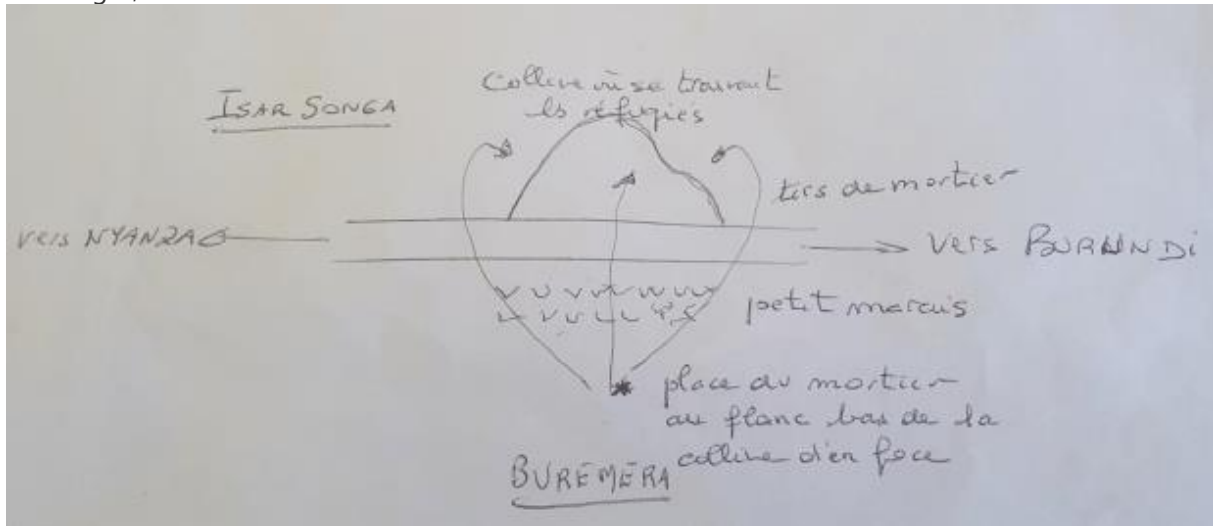 ISAR SONGA
Colline où se trouvent
les réfugiés
tirs de mortier
vers NYANZA
vers BURUNDI
petit marais
place du mortier
au flanc bas de la
colline d'en face
BUREMERA